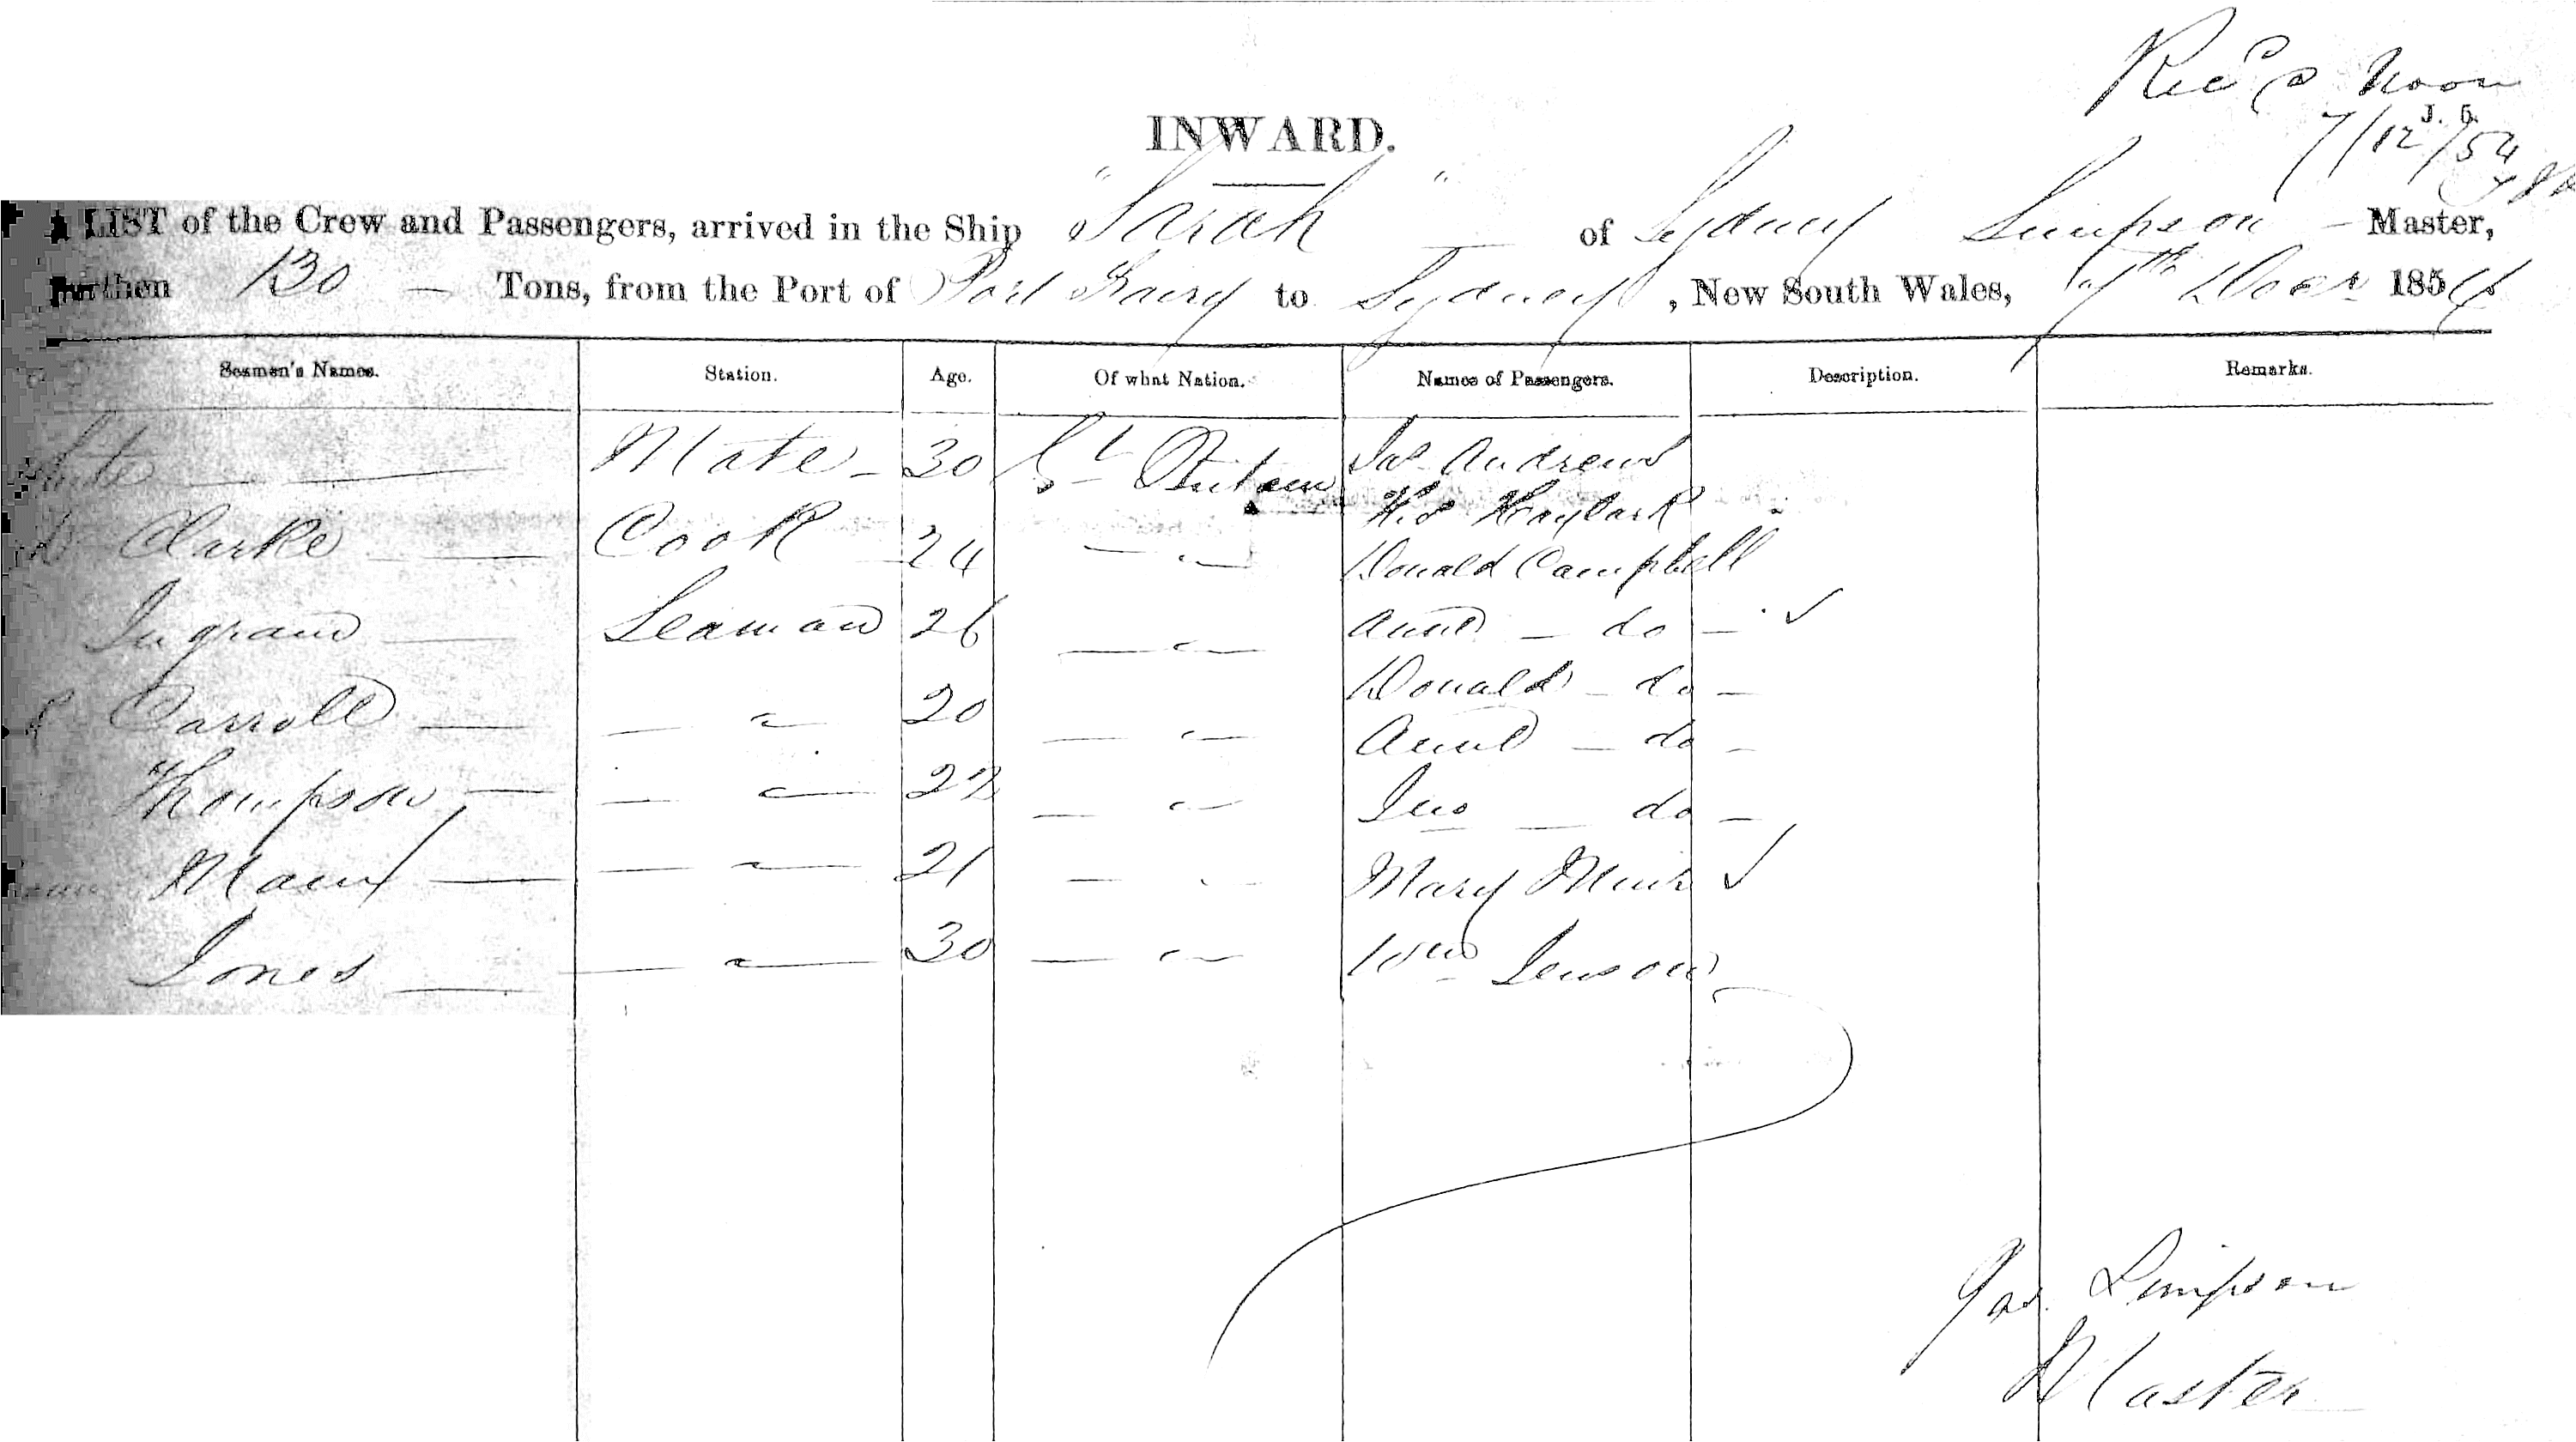 Recd Noon
J. 5.
7/12/54
INWARD.
A LIST of the Crew and Passengers, arrived in the Ship "Sarah" of Sydney Simpson - Master,
Burthen 130 - Tons, from the Port of Port Fairy to Sydney, New South Wales, 7th Decr 1854
Seamen's Names. Station. Age. Of what Nation. Names of Passengers. Description. Remarks.
Mate - 30 Gt Britain Jas Andrews
Clarke Cook 24 — " — 
Donald Campbell
Ingram Seaman 26 — " — Annd - do - ✓
Donald - do -
Carroll — " — 20 — " —
Annd - do -
Thompson — " — 22 — " — Jno - do -
— " — 21 — " — Mary Muir ✓
Jones — " — 30 — " — Jenson
Jas. Simpson
Master